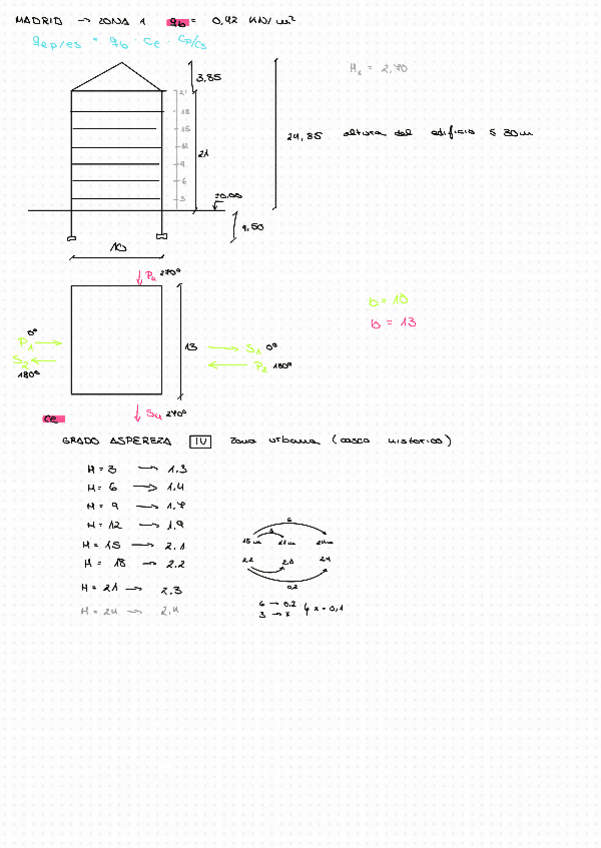 MADRID → ZONA 1 qb = 0,42 KN/m²
qep/es = qb · Ce · Cp/Cs
Hi = 2,70
3,85
21
18
15
12
9
6
3
21
24,85 altura del edificio ≤ 30m
±0.00
1,50
10
P4 270º
b = 10
b = 13
0º
P1
S2
180º
13
S1 0º
P2 180º
S4 270º
Ce
GRADO ASPEREZA IV zona urbana (casco historico)
H = 3 → 1,3
H = 6 → 1,4
H = 9 → 1,7
H = 12 → 1,9
H = 15 → 2.1
H = 18 → 2.2
H = 21 → 2,3
H = 24 → 2,4
6
3
18m 21m 24m
2.2 2.3 2.4
0,2
6 → 0.2
3 → x
x = 0,1